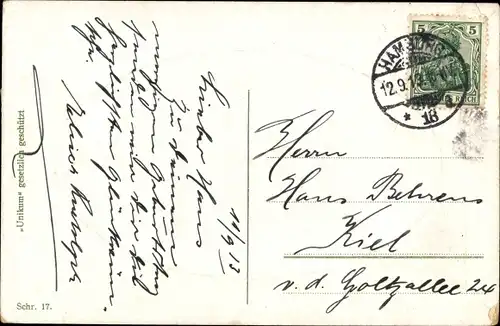 11/9 13
Lieber Hans
Zu deinem
Geburtstag
senden wir dir die
herzlichsten Glückwünsche
Herrn
Hans Behrens
Kiel
v. d. Goltzallee 24
5 5
HAMBURG
12.9.13
* 18
REICH
„Unikum" gesetzlich geschützt
Schr. 17.